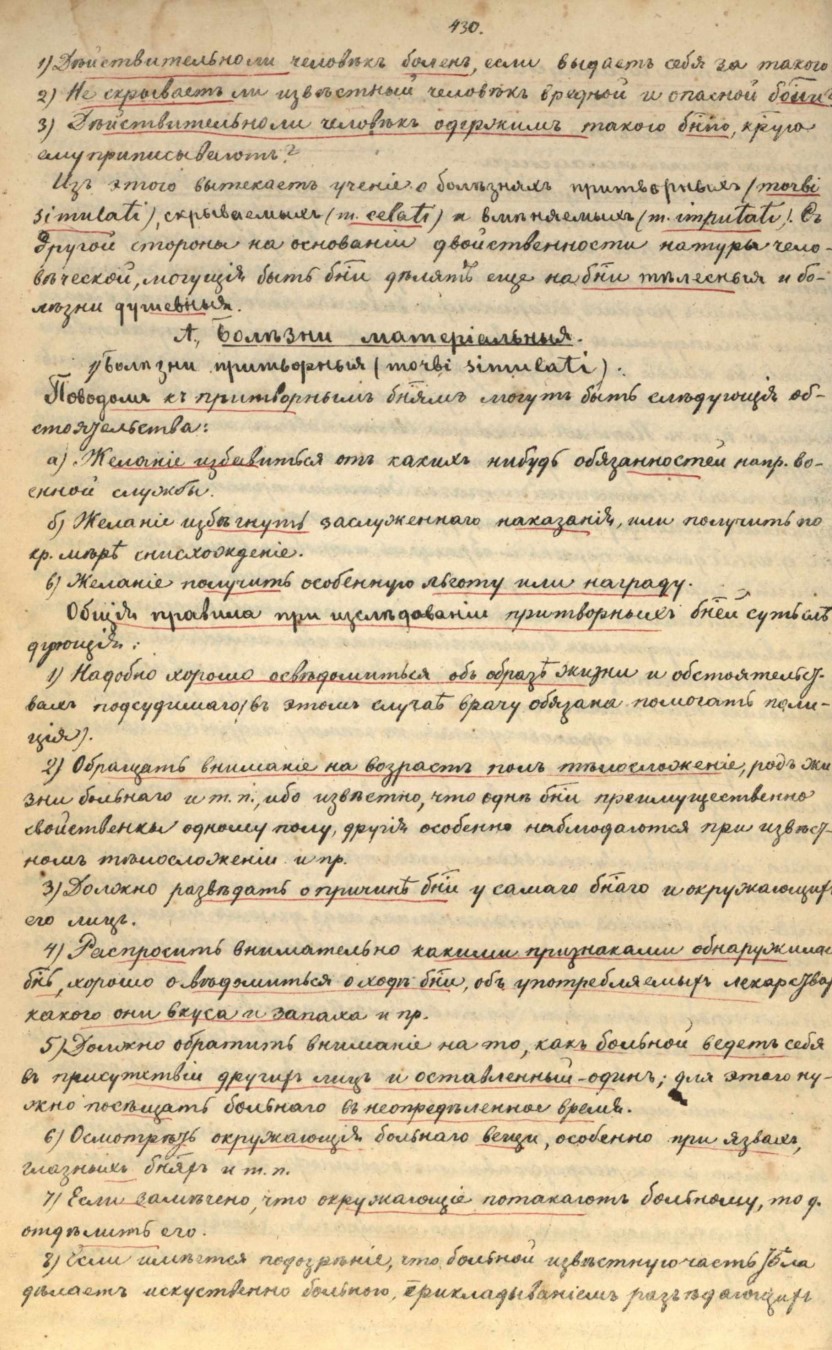 430.
1) Дѣйствительноли человѣкъ боленъ, если выдаетъ себя за такого
2) Не скрываетъ ли извѣстный человѣкъ вредной и опасной бо̃ни?
3) Дѣйствительноли человѣкъ одержимъ такого бн̃ію, кѵю
ему приписываютъ?
Изъ этого вытекаетъ ученіе о болѣзняхъ притворныхъ (morbi
simulati), скрываемыхъ (m. celati) и вмѣняемыхъ (m. imputati). Съ
другой стороны на основаніи двойственности натуры чело-
вѣческой, могущія быть бн̃и дѣлятъ еще на бн̃и тѣлесныя и бо-
лѣзни душевныя.
А, Болѣзни матеріальныя.
1) Болѣзни притворныя (morbi simulati).
Поводомъ къ притворнымъ бн̃ямъ могутъ быть слѣдующія об-
стоятельства:
а) Желаніе избавиться отъ какихъ нибудь обязанностей напр. во-
енной службы.
б) Желаніе избѣгнуть заслуженнаго наказанія, или получить по
кр. мѣрѣ снисхожденіе.
в) Желаніе получить особенную льготу или награду.
Общія правила при изслѣдованіи притворныхъ бн̃ей суть слѣ
дующія:
1) Надобно хорошо освѣдомиться объ образѣ жизни и обстоятельст-
вахъ подсудимаго (въ этомъ случаѣ врачу обязана помогать поли-
ція).
2) Обращать вниманіе на возрастъ полъ тѣлосложеніе, родъ жи
зни больнаго и т. п., ибо извѣстно, что однѣ бн̃и преимущественно
свойственны одному полу, другія особенно наблюдаются при извѣст-
номъ тѣлосложеніи и пр.
3) Должно развѣдать о причинѣ бн̃и у самаго бн̃аго и окружающихъ
его лицъ.
4) Распросить внимательно какими признаками обнаружилась
бн̃ь, хорошо освѣдомиться о ходѣ бн̃и, объ употребляемыхъ лекарствахъ
какого они вкуса и запаха и пр.
5) Должно обратить вниманіе на то, какъ больной ведетъ себя
въ присутствіи другихъ лицъ и оставленный-одинъ; для этого ну-
жно посѣщать больнаго въ неопредѣленное время.
6) Осмотрѣть окружающія больнаго вещи, особенно при язвахъ,
глазныхъ бн̃яхъ и т. п.
7) Если замѣчено, что окружающіе потакаютъ больному, то д.
отдѣлить его.
8) Если имѣется подозрѣніе, что больной извѣстную часть тѣла
дѣлаетъ искуственно больного, прикладываніемъ разъѣдающихъ